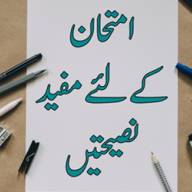 امتحان
کے لئے مفید
نصیحتیں